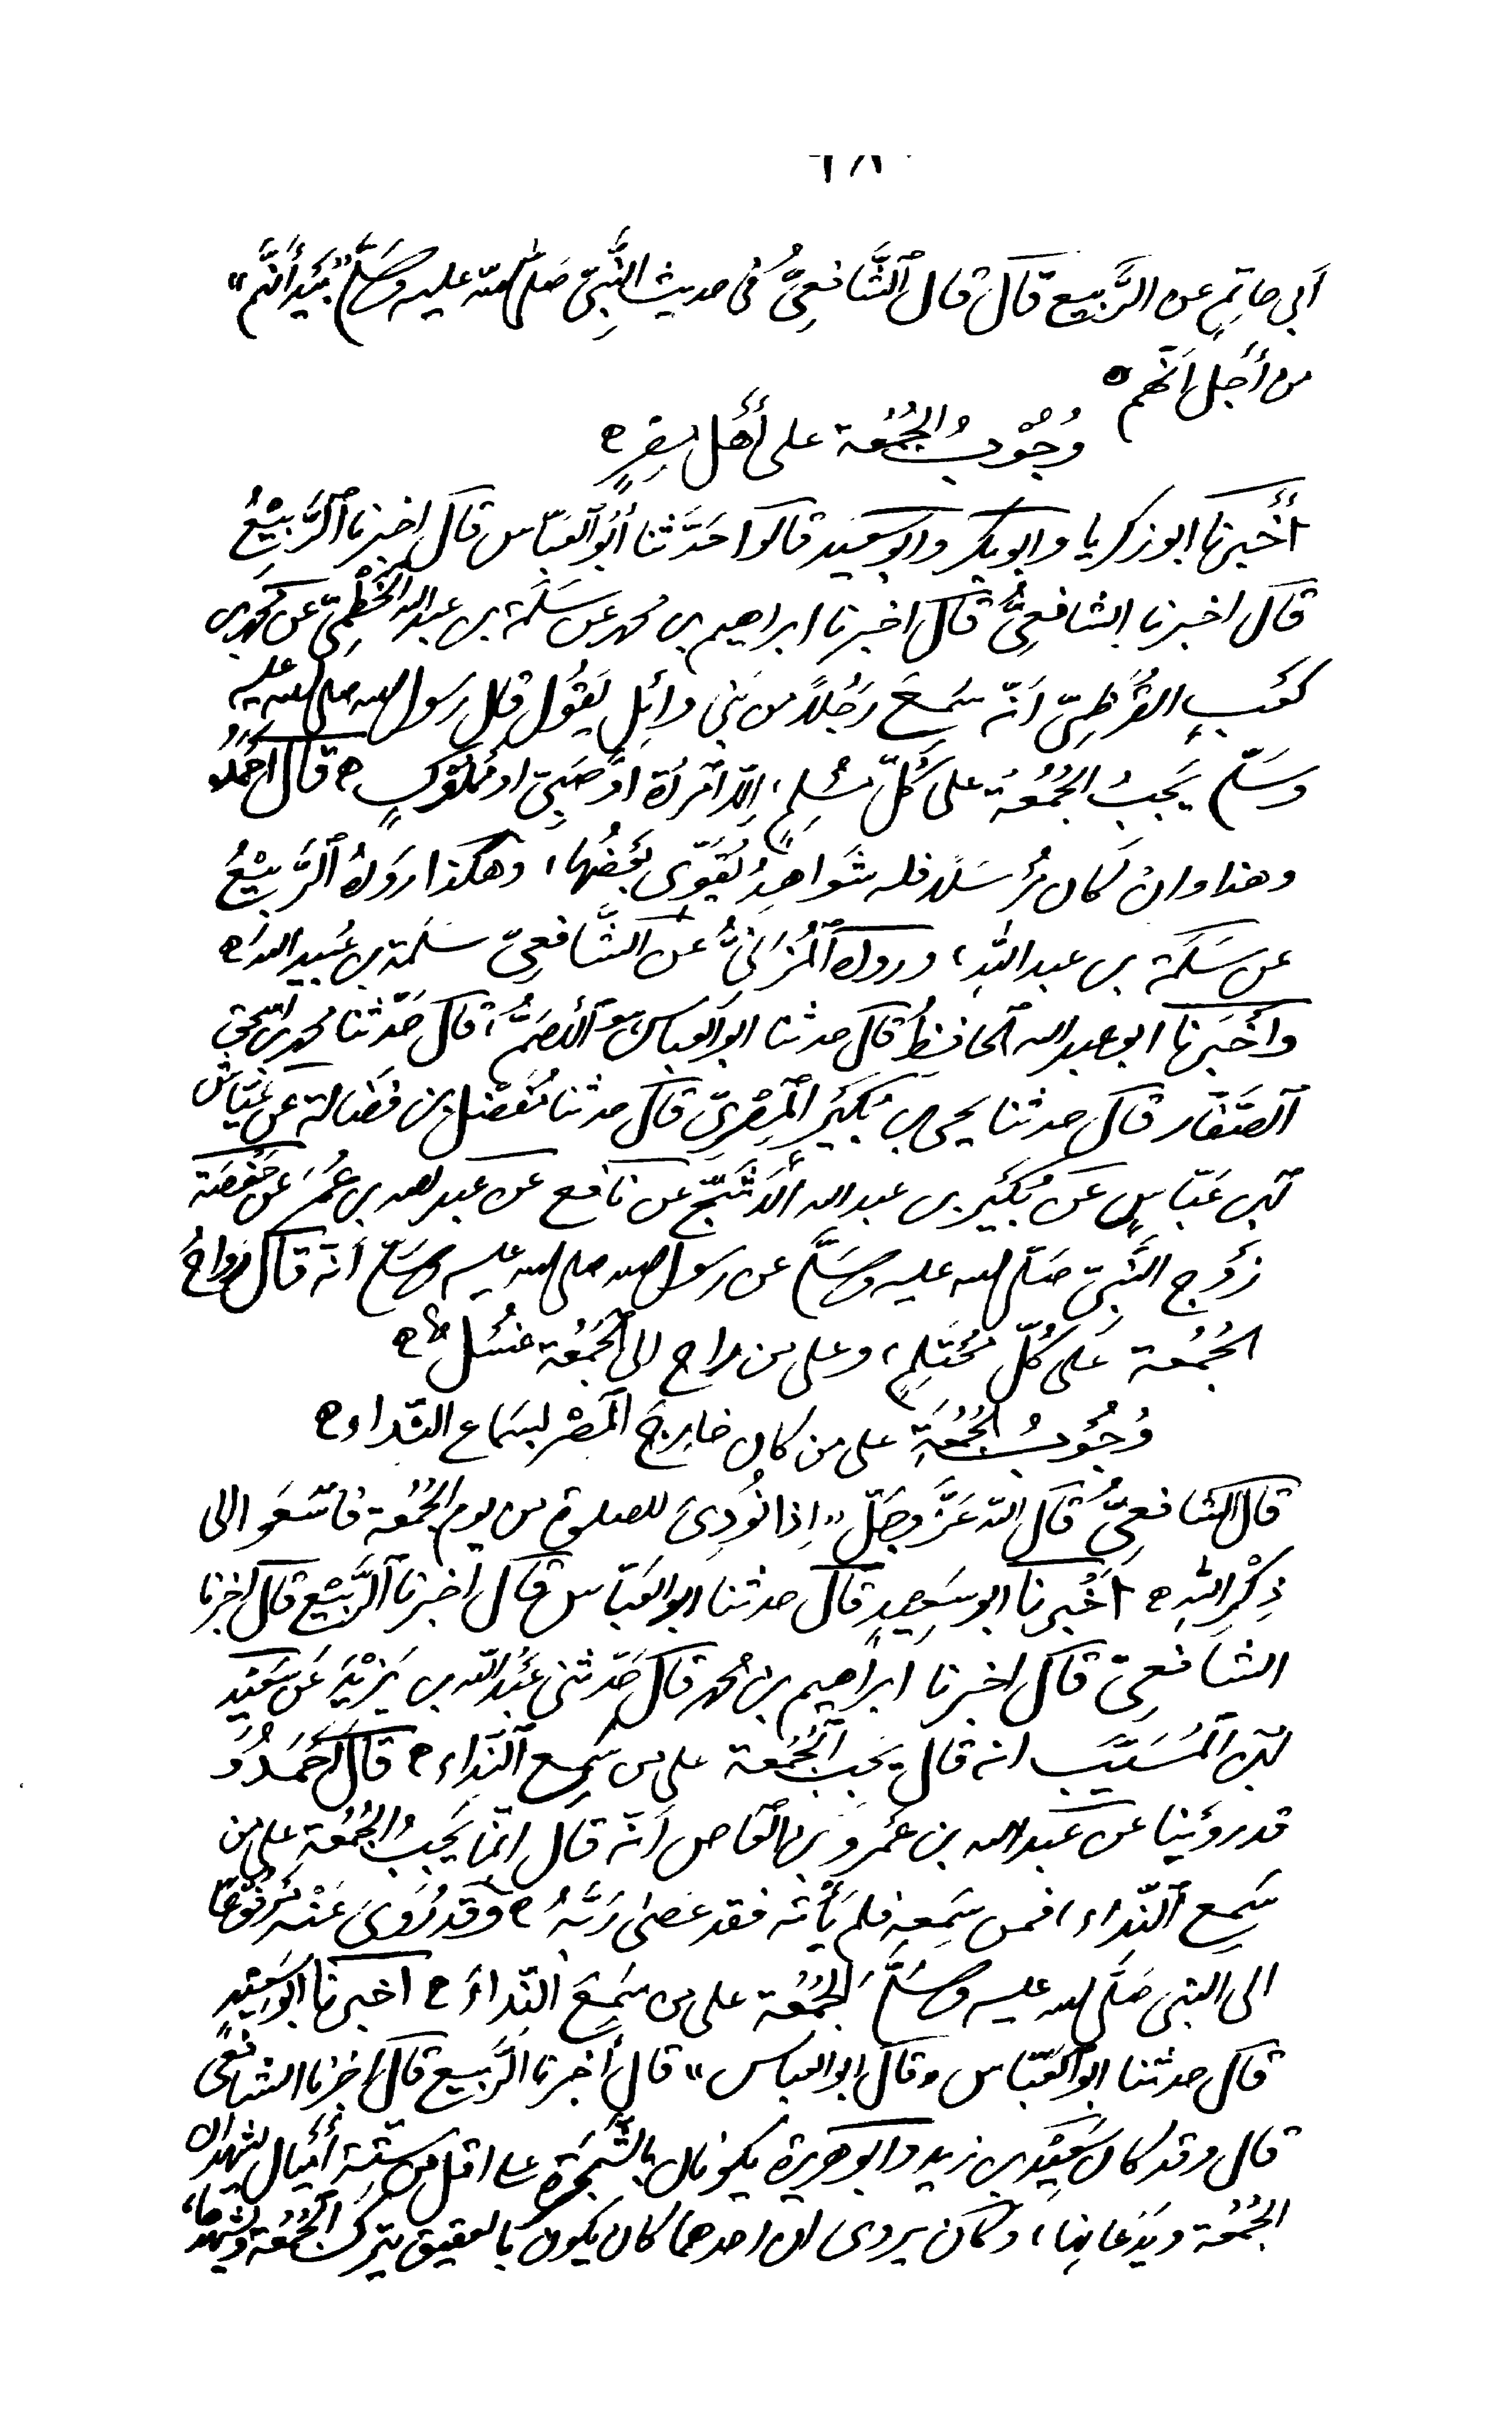 ٦٨
أبي حاتِمٍ عن الرَّبيع قال قال الشَّافعيُّ في حديث النَّبِيّ صَلَّى الله عليه وسَلَّم "بَيْدَ أَنَّهم"
من أَجل اَنّهم ٥
وُجُوْبُ الجُمُعة على أَهْل ٥
أَخْبرنا ابو زكريا وابوبكر وابوسعيد قالوا حَدَّثنا أَبُو العَبّاس قال اخبرنا الرَّبيْعُ
قال اخبرنا الشافعيُّ قال اخبرنا ابراهيم بن محمد عن سَلَمة بن عبدالله الخَطْمِيّ عن محمد بن
كَعْبٍ القُرَظِيّ اَنّه سَمِعَ رَجُلاً من بَنِي وائِل يَقُول قال رسول الله صلى الله عليه
وسَلّم يَجِبُ الجُمُعَةُ على كُلّ مُسْلِمٍ، اِلاّ امْرَأة اَوْ صَبِيّ او مَملُوكٍ ٥ قال احْمَدُ
وهذا وان كان مُرْسَلاً فله شَوَاهِدُ يُقَوّى بَعْضُها، وهكذا رَوَاهُ الرَّبيْعُ
عن سَلَمَة بن عبد اللهِ، ورواه المُزَنيُّ عن الشَّافِعِيّ سَلَمة بن عُبيد الله ٥
وأَخْبَرنا ابو عبدالله الحافظُ قال حدثنا ابو العباس هو الأصَمُّ، قال حَدّثنا محمد بن اسحق
الصَّفّار قال حدثنا يحيى بن بُكَيْر المِصْريّ قال حدثنا مُفَضّل بن فَضَالة عن عَيّاش
ابن عَبّاسٍ عن بُكَيْر بن عبد الله الأشَجّ عن نافع عن عبد الله بن عُمَر عن حَفْصَة
زَوْج النَّبِيّ صَلَّى الله عليه وسَلَّم عن رسول الله صلى الله عليه وسلّم أنّه قال رواحُ
الجُمُعة عَلَى كُلّ مُحْتَلِمٍ، وعلى من راح الى الجُمُعة غُسْل ٥
وُجُوْبُ الجُمُعَةِ على من كان خارِجَ المِصْر لِسَماع النّداء ٥
قال الشافعيُّ قال الله عَزَّ وجَلّ "اِذا نُودِىَ للصلوة من يوم الجُمُعة فاسْعَوا الى
ذِكْرِ اللهِ ٥ اَخْبرنا ابو سَعِيدٍ قال حدثنا ابو العَبّاس قال اخبرنا الرَّبيْع قال اخبرنا
الشافعيّ قال اخبرنا ابراهيم بن محمد قال حَدّثني عَبْد الله بن يَزِيْدَ عن سَعيْد
ابن المُسَيَّب انه قال يَجِبُ الجُمُعة على من سَمِع النِّداء ٥ قال اَحْمَدُ وَ
قد روينا عن عبدالله بن عَمْرو بن العاص اَنّه قال اِنّما يَجِبُ الجُمُعة على من
سَمِع النِّداء، فمن سَمِعه فلم يَأْته فقد عَصَى رَبَّهُ ٥ وقد رُوِىَ عَنْه مَرْفُوعًا
الى النبي صَلَّى الله عليه وسَلَّم الجُمُعة على من سَمِعَ النِّداءَ ٥ اخبرنا ابو سَعِيْدٍ
قال حدثنا ابو العَبّاس وقال ابو العباس" قال أخبرنا الرَّبيع قال اخبرنا الشافعى
قال وقد كان سَعِيْد بن زيد وابو هريرة يكونان بالشَّجَرَة على اقل من سِتّة أَمْيال يشهدان
الجُمُعة ويَدَعانها، وكان يروى ان احدهما كان يكون بالعقيق يترك الجُمُعة ويشهدها،